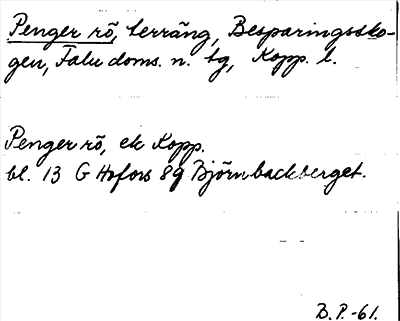 Penger rö, terräng, Besparingssko-
gen, Falu doms. n. tg, Kopp. l.
Penger rö, ek Kopp.
bl. 13 G Hofors 8g Björnbackberget.
B. P. -61.